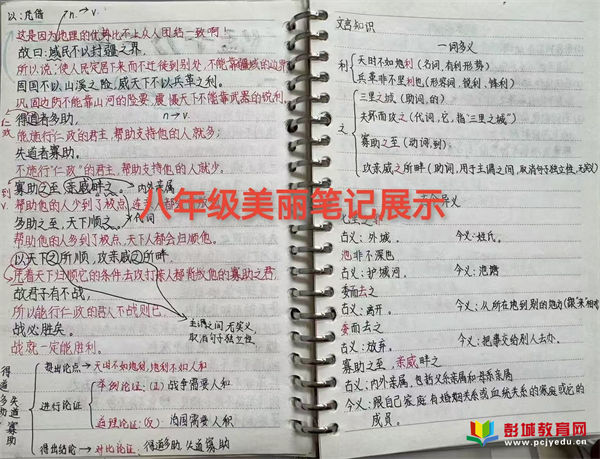 以：凭借 n. → v.
这是因为地理的优势比不上众人团结一致啊！
故曰：域民不以封疆之界，
所以说：使人民定居下来而不迁徙到别处，不能靠疆域的边界
固国不以山溪之险，威天下不以兵革之利。
巩固边防不能靠山河的险要，震慑天下不能靠武器的锐利。
得道者多助， n→v
仁政
能施行仁政的君主，帮助支持他的人就多；
失道者寡助。
不施行"仁政"的君主，帮助支持他的人就少。
到
v.
寡助之至，亲戚畔之。内外亲属
帮助他的人少到了极点，连
多助之至，天下顺之。 代词
帮助他的人多到了极点，天下人都会归顺他。
以天下之所顺，攻亲戚之所畔，
凭着天下归顺它的条件，去攻打
故君子有不战，
所以能行仁政的君主不战则已，
战必胜矣。
战就一定能胜利。
主谓之间无实义，
取消句子独立性。
得道多助失道寡助
提出论点→天时不如地利，地利不如人和
进行论证
举例论证：(1) 战争需要人和
道理论证：(反) 治国需要人和
得出结论→对比论证，得道多助 失道寡助
文言知识
一词多义
利
天时不如地利(名词，有利形势)
兵革非不坚利也(形容词，锐利、锋利)
之
三里之城(助词，的)
夫环而攻之(代词，它，指"三里之城")
寡助之至(动词，到)
攻亲戚之所畔(助词，用于主谓之间，取消句子独立性，无义)
古义：外城。 今义：姓氏。
池非不深也
古义：护城河。 今义：池塘
委而去之
古义：离开。 今义：从所在地到别的地方
委而去之
古义：放弃。 今义：把事交给别人去办。
寡助之至，亲戚畔之
古义：内外亲属，包括父系亲属和母系亲属
今义：跟自己家庭有婚姻关系或血统关系的家庭或它的
成员。
八年级美丽笔记展示
彭城教育网
www.pcjyedu.cn